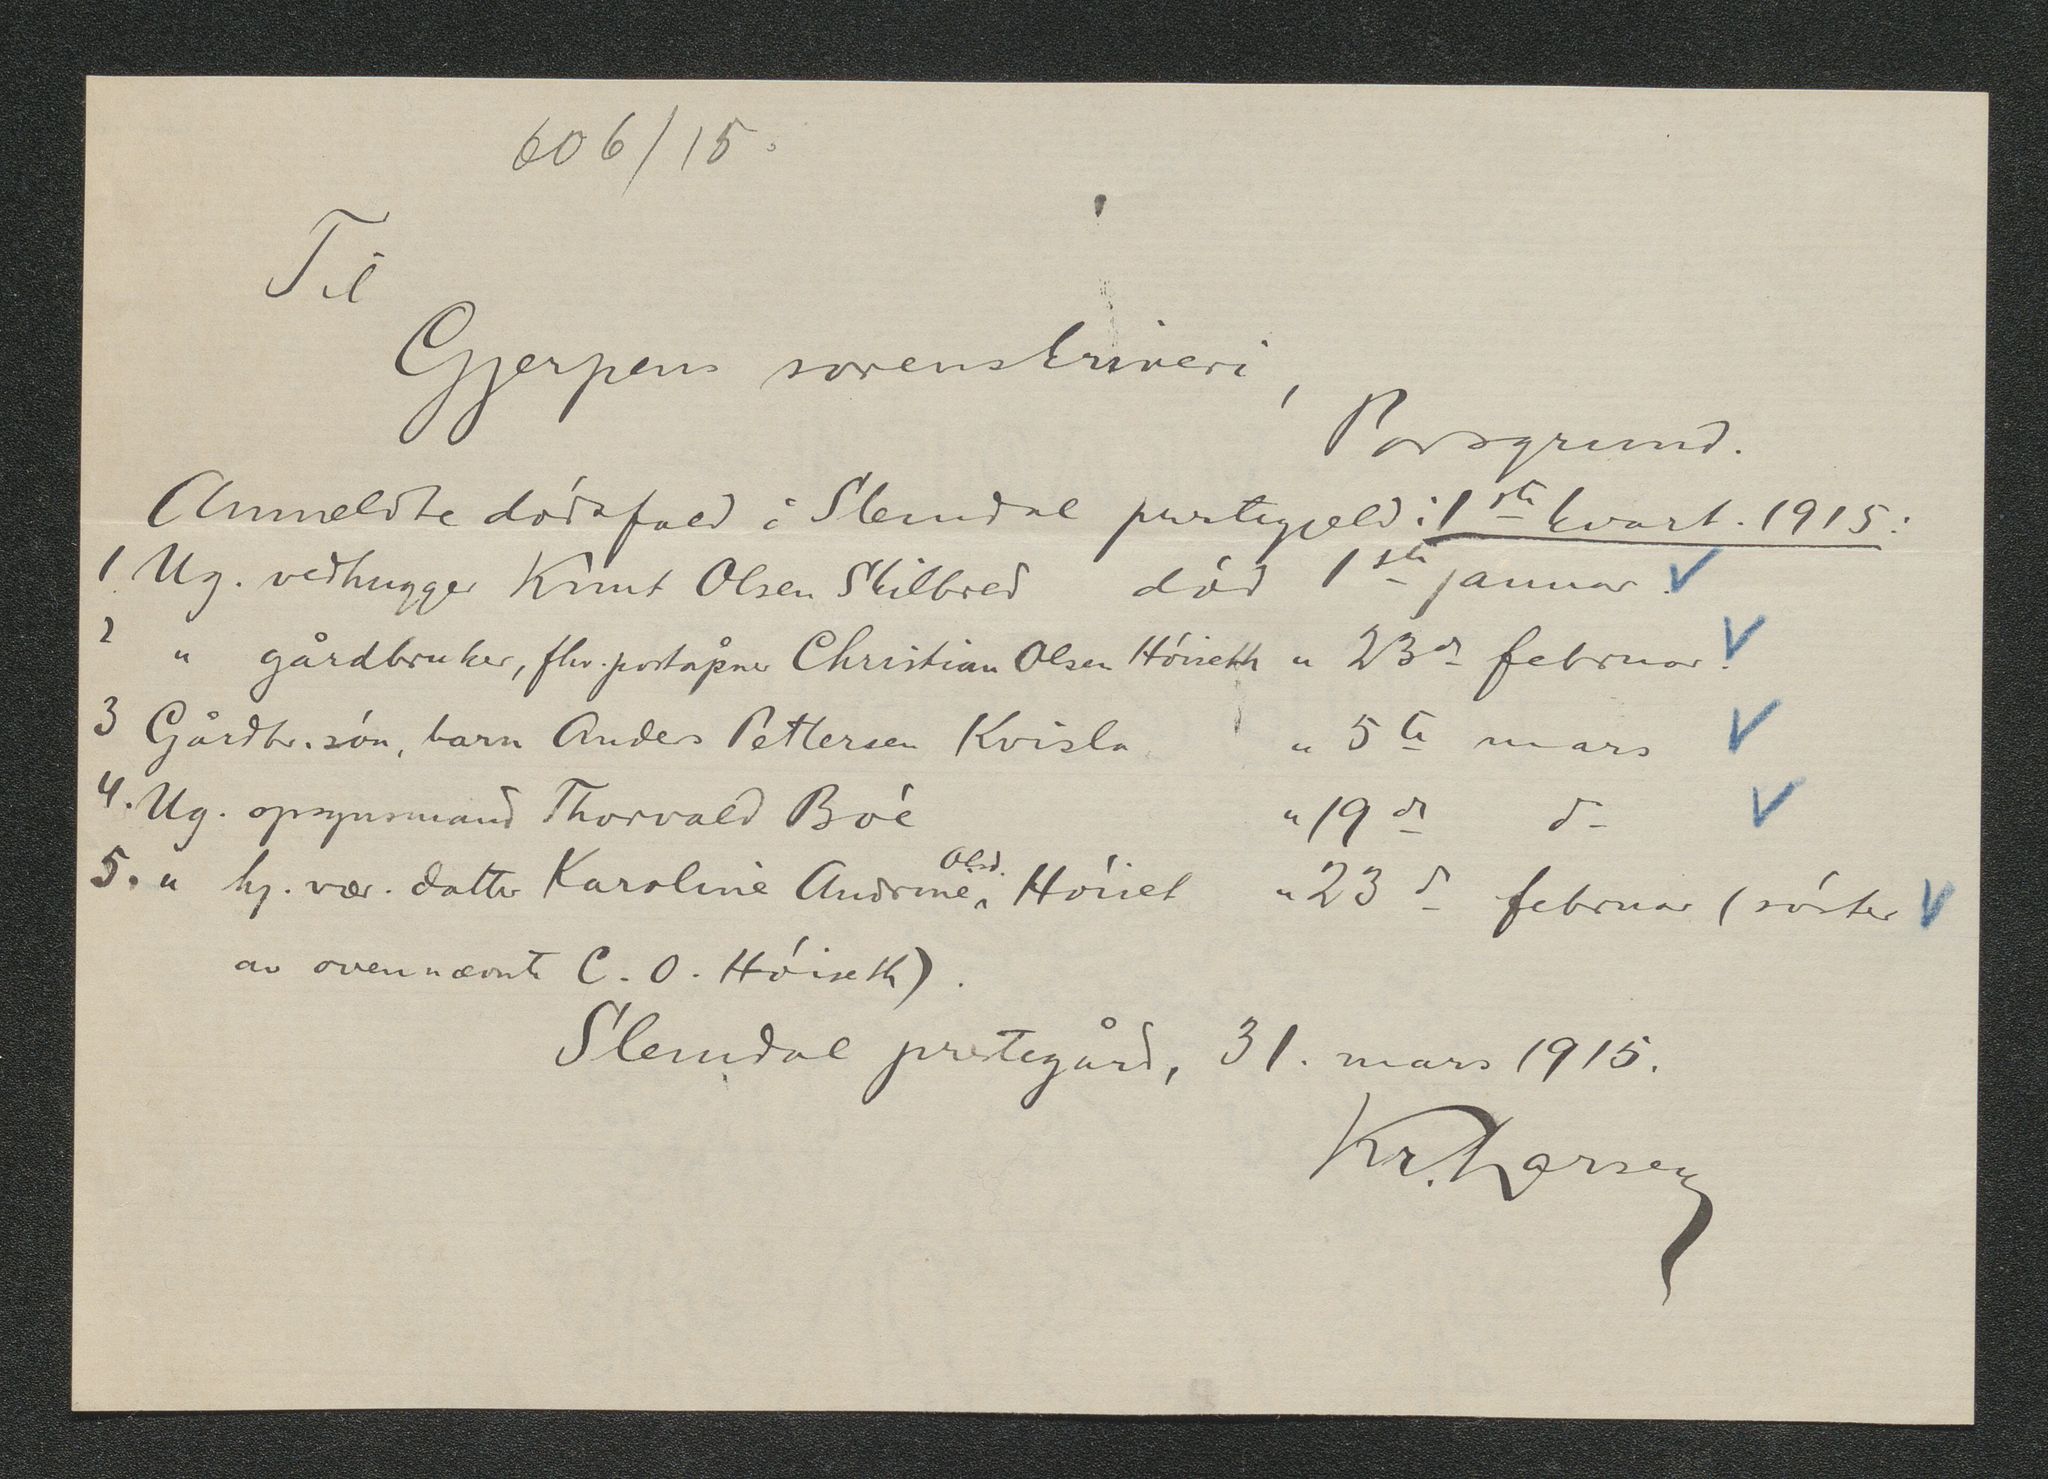 606/15.
Til
Gjerpens sorenskriveri,
Porsgrund.
Anmeldte dødsfald i Slemdal prestegjeld i 1ste kvart. 1915:
1 Ug. vedhugger Knut Olsen Skilbred død 1ste januar.
2 " gårdbruker, fhv. poståpner Christian Olsen Hóiseth " 23de februar.
3 Gårdbr. són, barn Anders Pettersen Kvisla " 5te mars
4. Ug. opsynsmand Thorvald Bóe " 19de do
5. " hj. vær. datter Karoline Andrine Olsd. Hóiset " 23d februar (sóster
av ovennævnte C. O. Hóiseth).
Slemdal prestegård, 31. mars 1915.
Kr. Larsen